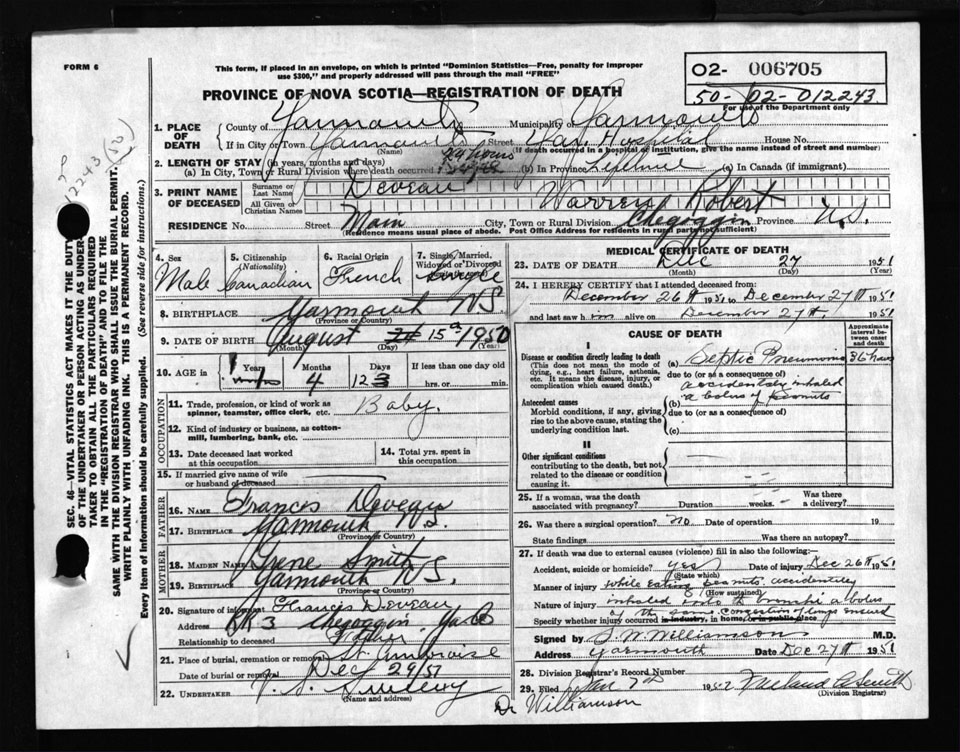 FORM 6
This form, if placed in an envelope, on which is printed "Dominion Statistics—Free, penalty for improper
use $300," and properly addressed will pass through the mail "FREE"
O2- 006705
50-02-012243
For use of the Department only
PROVINCE OF NOVA SCOTIA—REGISTRATION OF DEATH
1. PLACE OF DEATH
County of Yarmouth Municipality of Yarmouth
If in City or Town Yarmouth Street Yar. Hospital House No.
(Name) (If death occurred in a hospital or institution, give the name instead of street and number)
2. LENGTH OF STAY (in years, months and days)
(a) In City, Town or Rural Division where death occurred 24 hours (b) In Province Lifetime (c) In Canada (if immigrant)
3. PRINT NAME OF DECEASED
Surname or Last Name Deveau
All Given or Christian Names Warren Robert
RESIDENCE No. Street Main City, Town or Rural Division Chegoggin Province N.S.
(Residence means usual place of abode. Post Office Address for residents in rural parts not sufficient)
4. Sex Male
5. Citizenship (Nationality) Canadian
6. Racial Origin French
7. Single, Married, Widowed or Divorced Single
8. BIRTHPLACE Yarmouth N.S.
(Province or Country)
9. DATE OF BIRTH August 15 1950
(Month) (Day) (Year)
10. AGE in Years 1 Months 4 Days 12 If less than one day old hrs. or min.
OCCUPATION
11. Trade, profession, or kind of work as
spinner, teamster, office clerk, etc. Baby.
12. Kind of industry or business, as cotton-
mill, lumbering, bank, etc.
13. Date deceased last worked
at this occupation
14. Total yrs. spent in
this occupation
15. If married give name of wife
or husband of deceased
FATHER
16. Name Francis Deveau
17. Birthplace Yarmouth N.S.
(Province or Country)
MOTHER
18. Maiden Name Irene Smith
19. Birthplace Yarmouth N.S.
(Province or Country)
20. Signature of informant Francis Deveau
Address RR 3 Chegoggin Yar Co
Relationship to deceased Father
21. Place of burial, cremation or removal St. Ambroise
Date of burial or removal Dec 29/51
22. UNDERTAKER
(Name and address)
MEDICAL CERTIFICATE OF DEATH
23. DATE OF DEATH Dec 27 1951
(Month) (Day) (Year)
24. I HEREBY CERTIFY that I attended deceased from:
December 26th 1951 to December 27th 1951
and last saw him alive on December 27th 1951
CAUSE OF DEATH
Approximate interval between onset and death
I
Disease or condition directly leading to death
(This does not mean the mode of
dying, e.g., heart failure, asthenia,
etc. It means the disease, injury, or
complication which caused death.)
(a) Septic Pneumonia 36 hours
due to (or as a consequence of)
accidentaly inhaled
(b) a bolus of peanuts
due to (or as a consequence of)
(c)
Antecedent causes
Morbid conditions, if any, giving
rise to the above cause, stating the
underlying condition last.
II
Other significant conditions
contributing to the death, but not
related to the disease or condition
causing it.
25. If a woman, was the death
associated with pregnancy? Duration weeks. Was there a delivery?
26. Was there a surgical operation? no Date of operation 19
State findings Was there an autopsy?
27. If death was due to external causes (violence) fill in also the following:—
Accident, suicide or homicide? yes Date of injury Dec 26th 1951
(State which)
Manner of injury while eating peanuts accidentley
(How sustained)
Nature of injury inhaled into the bronchi a bolus
of the same. Congestion of lungs ensued
Specify whether injury occurred in industry, in home, or in public place
Signed by J. W. Williamson M.D.
Address Yarmouth Date Dec 27th 1951
28. Division Registrar's Record Number
29. Filed Jan 7th 1952
(Division Registrar)
Dr Williamson
SEC. 46—VITAL STATISTICS ACT MAKES IT THE DUTY
OF THE UNDERTAKER OR PERSON ACTING AS UNDER-
TAKER TO OBTAIN ALL THE PARTICULARS REQUIRED
IN THE "REGISTRATION OF DEATH" AND TO FILE THE
SAME WITH THE DIVISION REGISTRAR WHO SHALL ISSUE THE BURIAL PERMIT.
WRITE PLAINLY WITH UNFADING INK. THIS IS A PERMANENT RECORD.
Every item of information should be carefully supplied. (See reverse side for instructions.)
? 12243 (50)